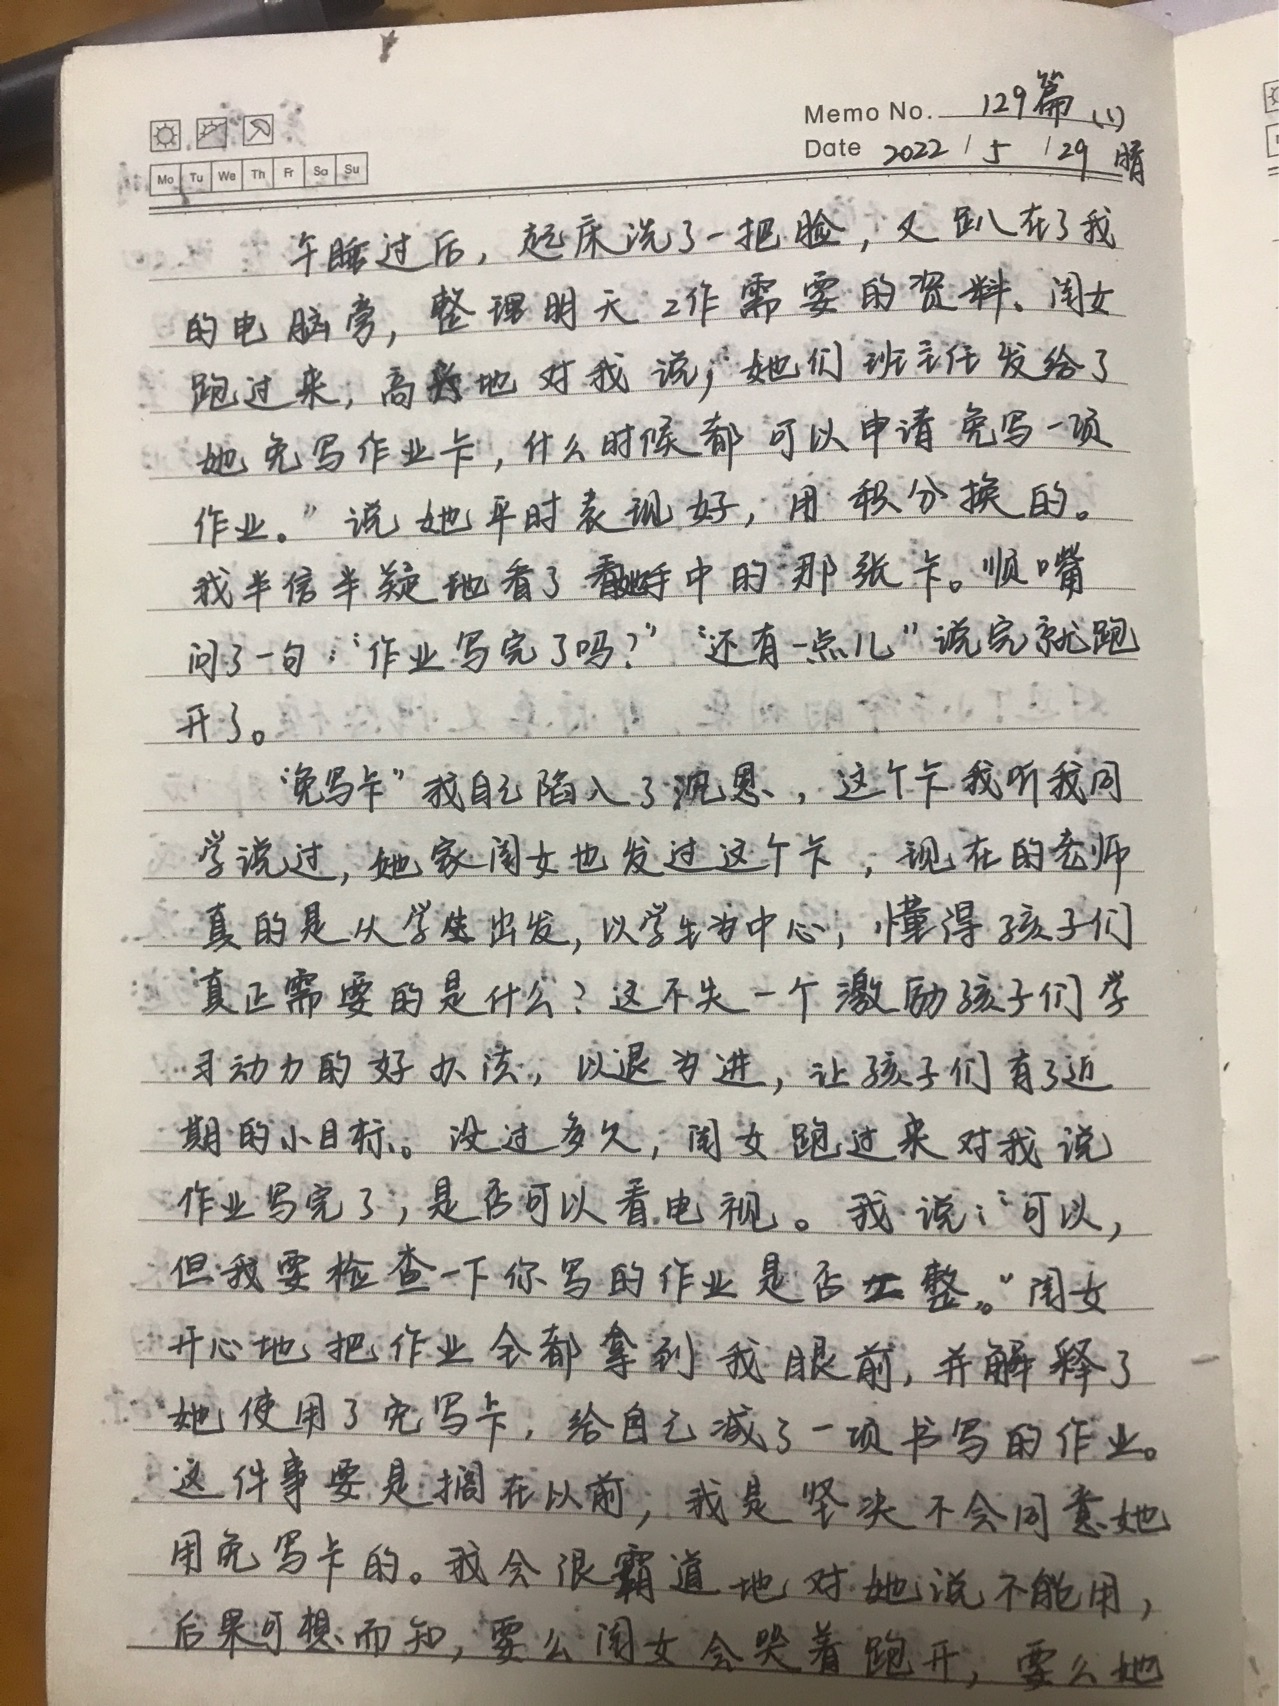 Memo No. 129篇(1)
Date 2022 / 5 / 29 晴
Mo Tu We Th Fr Sa Su
午睡过后，起床洗了一把脸，又趴在了我
的电脑旁，整理明天工作需要的资料、闺女
跑过来，高兴地对我说；“她们班主任发给了
她免写作业卡，什么时候都可以申请免写一项
作业。”说她平时表现好，用积分换的。
我半信半疑地看了看她手中的那张卡。顺嘴
问了一句：“作业写完了吗？”“还有一点儿”说完就跑
开了。
“免写卡”我自己陷入了沉思，这个卡我听我同
学说过，她家闺女也发过这个卡，现在的老师
真的是从学生出发，以学生为中心，懂得孩子们
真正需要的是什么？这不失一个激励孩子们学
习动力的好办法，以退为进，让孩子们有了近
期的小目标。没过多久，闺女跑过来对我说
作业写完了，是否可以看电视。我说：“可以，
但我要检查一下你写的作业是否工整。”闺女
开心地把作业全都拿到我眼前，并解释了
她使用了免写卡，给自己减了一项书写的作业。
这件事要是搁在以前，我是坚决不会同意她
用免写卡的。我会很霸道地对她说不能用，
后果可想而知，要么闺女会哭着跑开，要么她